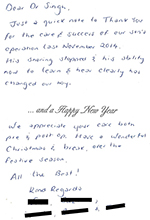 Dear Dr Singh,
Just a quick note to Thank You
for the care & success of our son's
operation last November 2014.
His snoring stopped & his ability
now to learn & hear clearly has
changed our boy.
...and a Happy New Year
We appreciate your care both
pre & post op. Have a wonderful
Christmas & break, over the
festive season.
All the Best!
Kind Regards